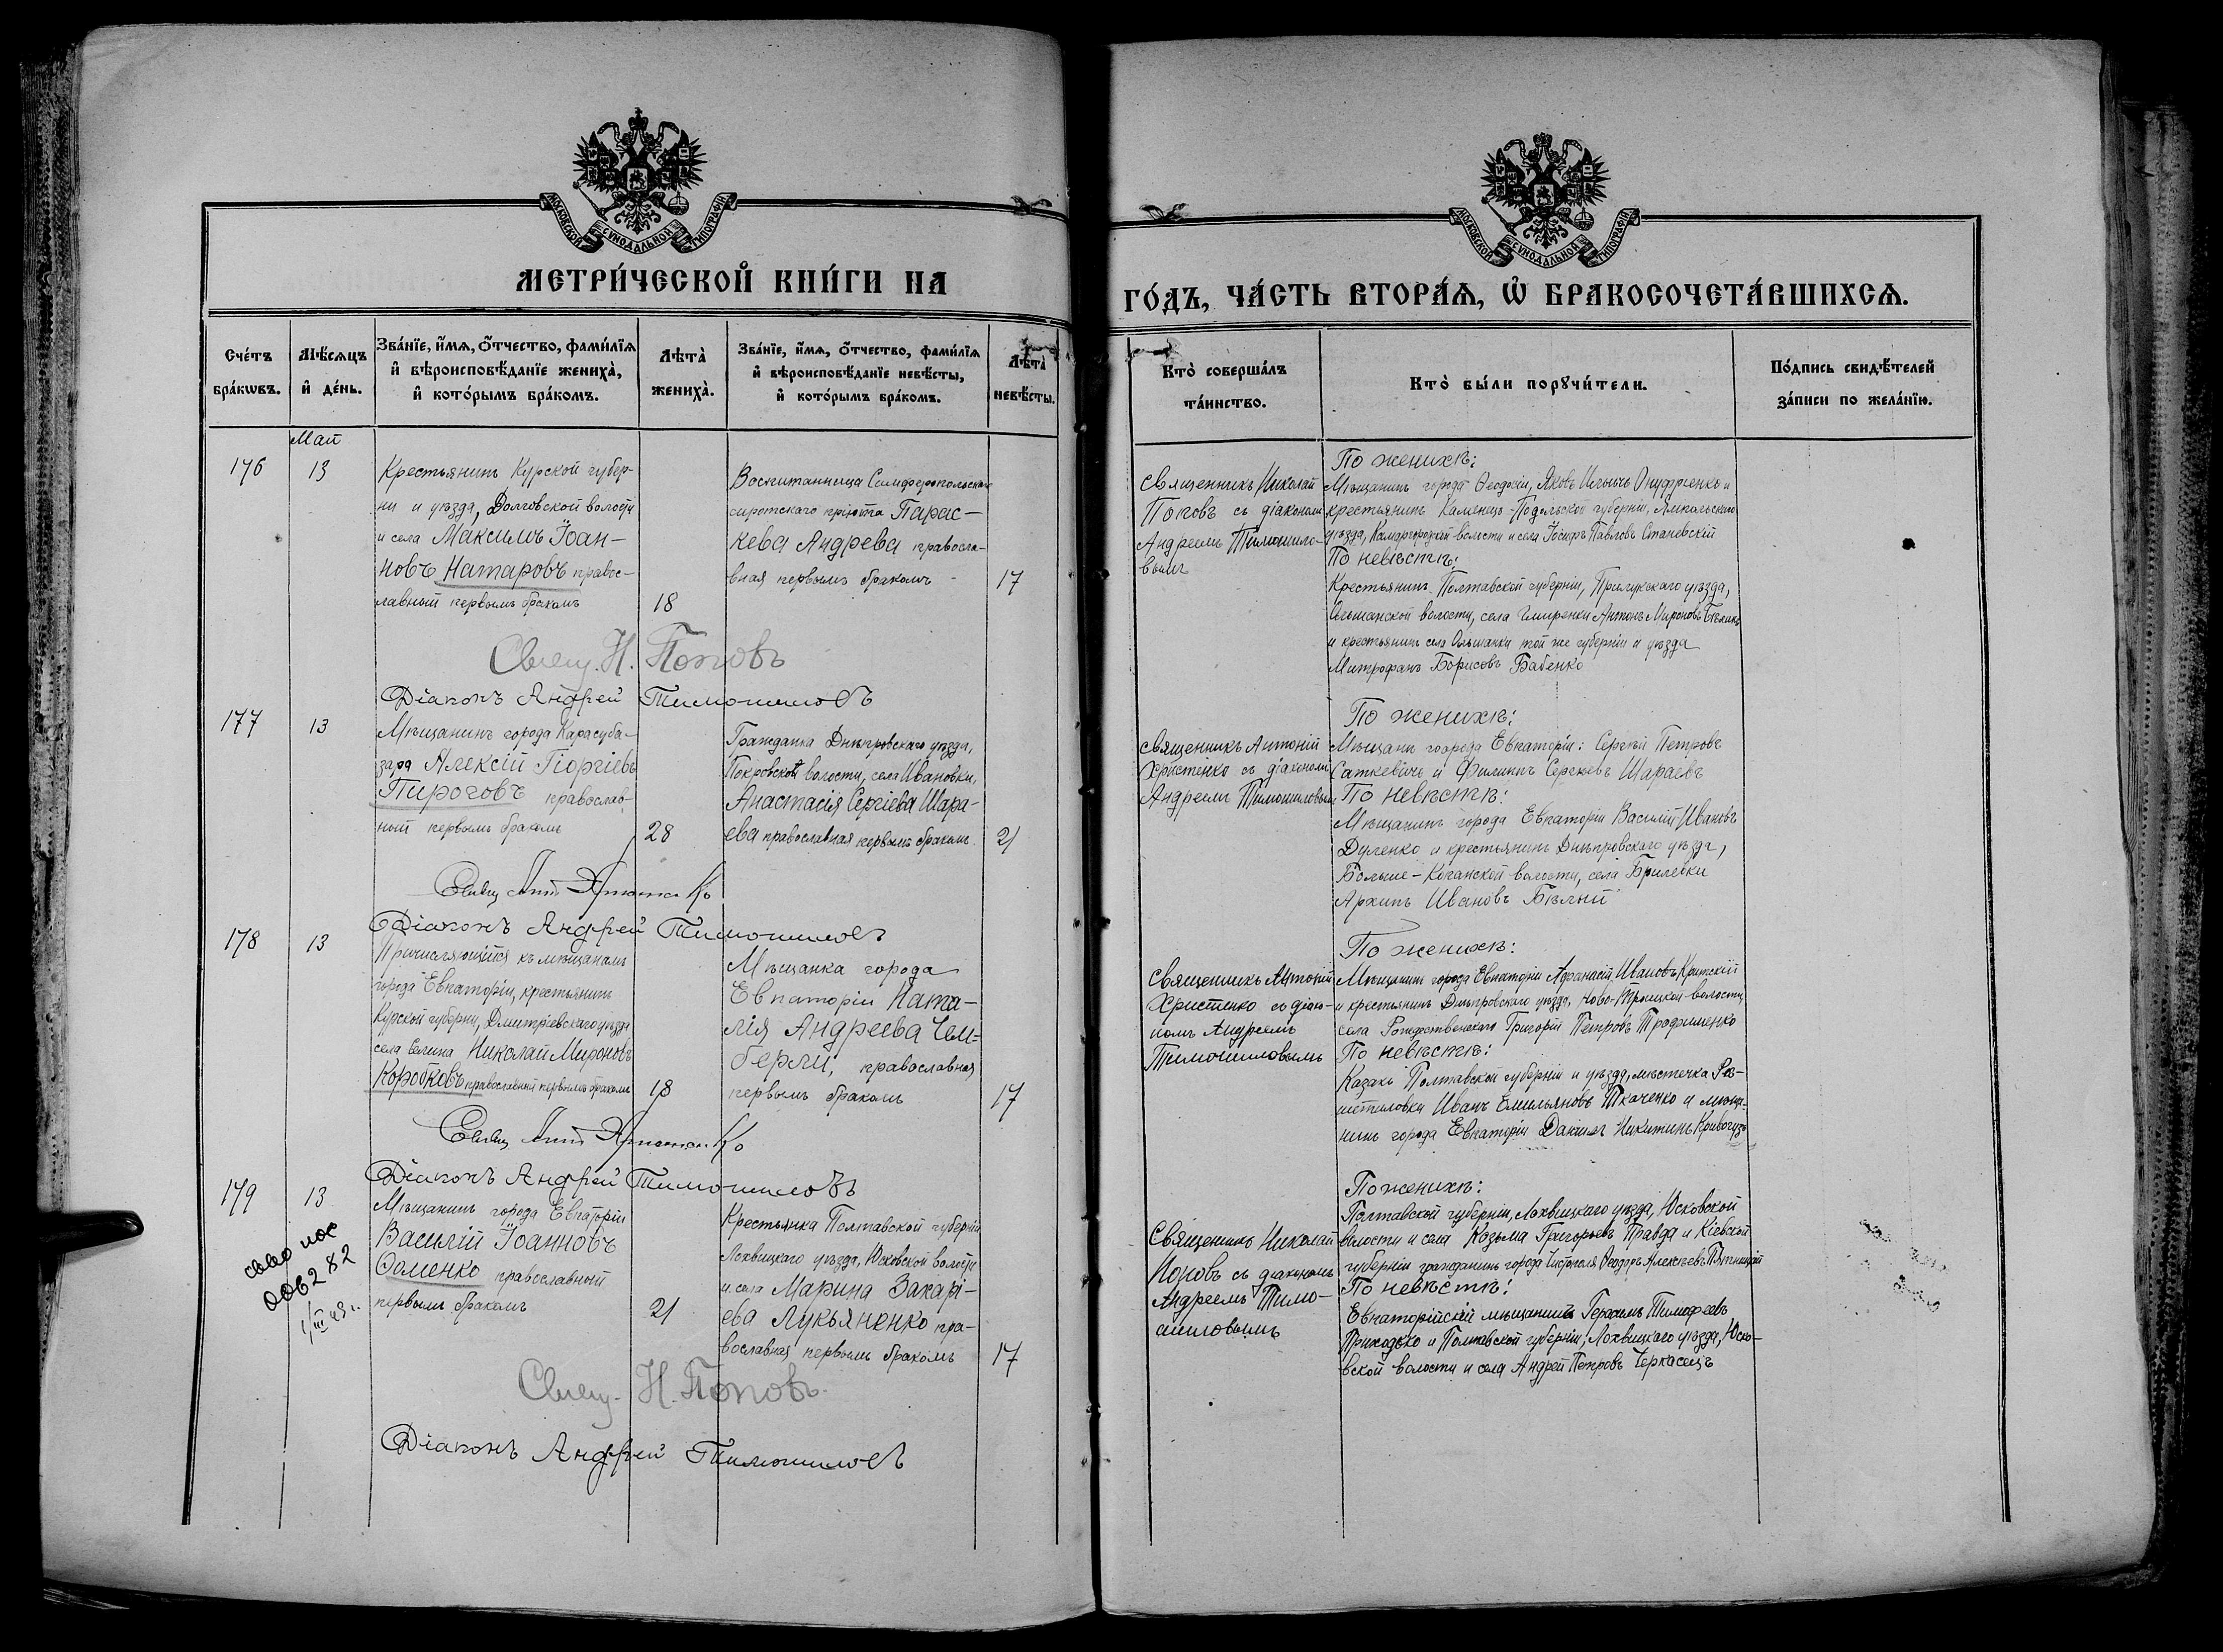 МОСКОВСКОЙ СУНОДАЛЬНОЙ ТИПОГРАФІИ
МЕТРИ́ЧЕСКОЙ КНИ́ГИ НА
Сче́тъ бра́кѡвъ.
Мѣ́сѧцъ и҆ де́нь.
Зва́нїе, и҆́мѧ, ѻ҆́тчество, фами́лїѧ
и҆ вѣроисповѣ́данїе жениха̀,
и҆ кото́рымъ бра́комъ.
Лѣта̀ жениха̀.
Зва́нїе, и҆́мѧ, ѻ҆́тчество, фами́лїѧ
и҆ вѣроисповѣ́данїе невѣ́сты,
и҆ кото́рымъ бра́комъ.
Лѣта̀ невѣ́сты.
Май
176
13
Крестьянинъ Курской губер-
ніи и уѣзда, Долговской волости
и села Максимъ Іоан-
новъ Натаровъ правос-
лавный первымъ бракомъ
18
Воспитанница Симферопольскаго
сиротскаго пріюта Парас-
кева Андреева правосла-
вная первымъ бракомъ
17
Свящ. Н. Поповъ
Діаконъ Андрей Тимошиловъ
177
13
Мѣщанинъ города Карасуба-
зара Алексій Гіоргіевъ
Пироговъ православ-
ный первымъ бракомъ
28
Гражданка Днѣпровскаго уѣзда,
Покровской волости, села Ивановки,
Анастасія Сергіева Шара-
ева православная первымъ бракомъ
21
Свящ Ант Христенко
Діаконъ Андрей Тимошиловъ
178
13
Причисляющійся къ мѣщанамъ
города Евпаторіи, крестьянинъ
Курской губерніи, Дмитріевскаго уѣзда
села Селина Николай Мироновъ
Коробковъ православный первымъ бракомъ
18
Мѣщанка города
Евпаторіи Ната-
лія Андреева Чем-
берли, православная
первымъ бракомъ
17
Свящ Ант Христенко
Діаконъ Андрей Тимошиловъ
179
13
Мѣщанинъ города Евпаторіи
Василій Іоанновъ
Ѳоменко православный
первымъ бракомъ
21
Крестьянка Полтавской губерніи
Лохвицкаго уѣзда, Юсковской волости
и села Марина Захарі-
ева Лукьяненко пра-
вославная первымъ бракомъ
17
006282
Свящ. Н. Поповъ
Діаконъ Андрей Тимошиловъ
МОСКОВСКОЙ СУНОДАЛЬНОЙ ТИПОГРАФІИ
ГО́ДЪ, ЧА́СТЬ ВТОРА́Ѧ, Ѽ БРАКОСОЧЕТА́ВШИХСѦ.
Кто̀ соверша́лъ та́инство.
Кто̀ бы́ли порꙋчи́тели.
По́дпись свидѣ́телей за́писи по жела́нїю.
Священникъ Николай
Поповъ съ діакономъ
Андреемъ Тимошило-
вымъ
По женихѣ:
Мѣщанинъ города Ѳеодосіи, Яковъ Ильичъ Онуфріенко и
крестьянинъ Каменецъ-Подольской губерніи, Ямпольскаго
уѣзда, Комаргородской волости и села Іосифъ Павловъ Станевскій
По невѣстѣ:
Крестьянинъ Полтавской губерніи, Прилукскаго уѣзда,
Ольшанской волости, села Гмиренки Антонъ Мироновъ
и крестьянинъ села Ольшанки той же губерніи и уѣзда
Митрофанъ Борисовъ Бабенко
Священникъ Антоній
Христенко съ діакономъ
Андреемъ Тимошиловымъ
По женихѣ:
Мѣщане города Евпаторіи: Сергѣй Петровъ
Саткевичъ и Филиппъ Сергѣевъ Шараевъ
По невѣстѣ:
Мѣщанинъ города Евпаторіи Василій Ивановъ
Дуленко и крестьянинъ Днѣпровскаго уѣзда,
Больше-Копанской волости, села Брилевки
Архипъ Ивановъ Бѣлый
Священникъ Антоній
Христенко съ діако-
номъ Андреемъ
Тимошиловымъ
По женихѣ:
Мѣщанинъ города Евпаторіи Афанасій Ивановъ Критскій
и крестьянинъ Днѣпровскаго уѣзда, Ново-Троицкой волости,
села Рождественскаго Григорій Петровъ Трофименко
По невѣстѣ:
Казакъ Полтавской губерніи и уѣзда, мѣстечка Рѣ-
шетиловки Иванъ Емельяновъ Ткаченко и мѣща-
нинъ города Евпаторіи Даніилъ Никитинъ Кривогузъ
Священникъ Николай
Поповъ съ діакономъ
Андреемъ Тимо-
шиловымъ
По женихѣ:
Полтавской губерніи, Лохвицкаго уѣзда, Юсковской
волости и села Козьма Григорьевъ Правда и Кіевской
губерніи гражданинъ города Ѳеодоръ Алексѣевъ
По невѣстѣ:
Евпаторійскій мѣщанинъ Герасимъ Тимофеевъ
Приходько и Полтавской губерніи, Лохвицкаго уѣзда, Юско-
вской волости и села Андрей Петровъ Черкасецъ